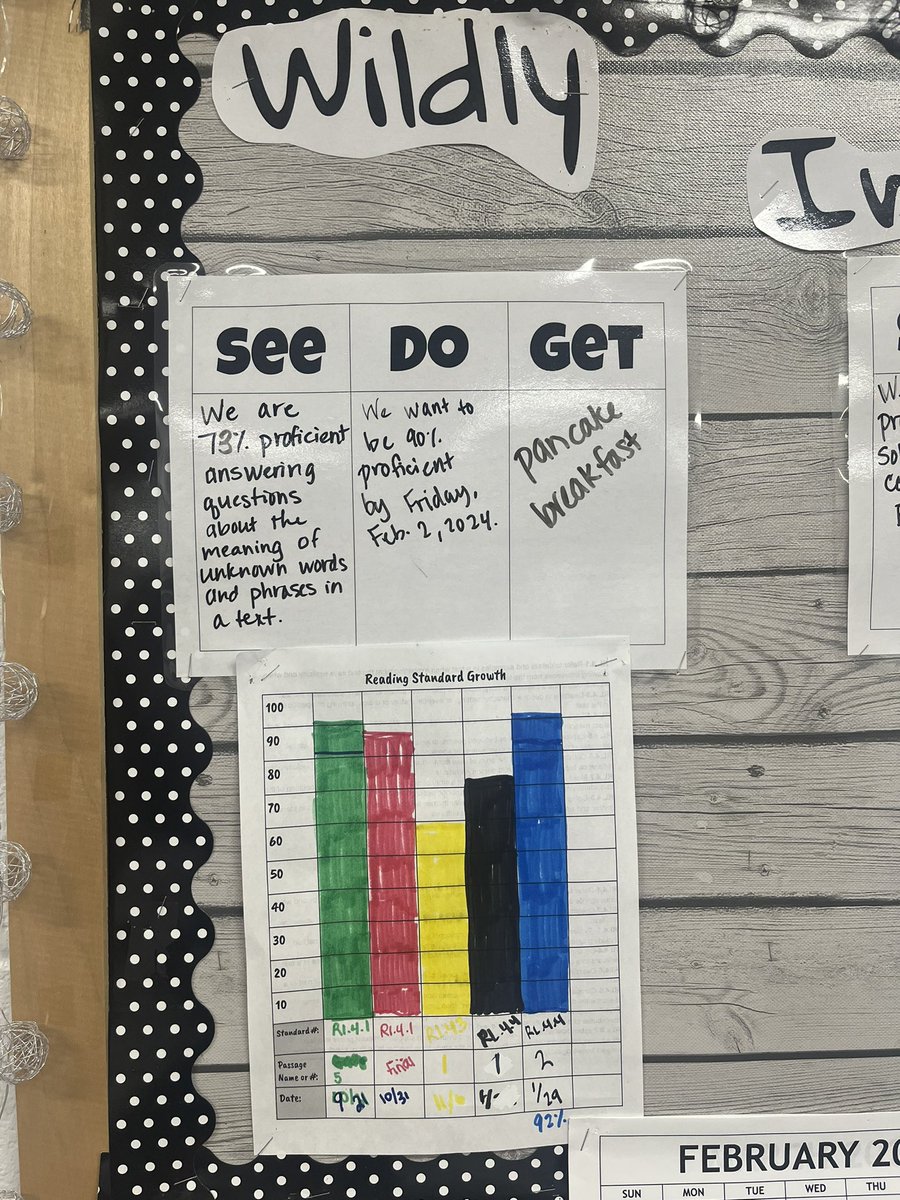 Wildly
See Do Get
We are
73% proficient
answering
questions
about the
meaning of
unknown words
and phrases in
a text.
We want to
be 90%
proficient
by Friday,
Feb. 2, 2024.
pancake
breakfast
Reading Standard Growth
100
90
80
70
60
50
40
30
20
10
Standard #: RI.4.1 RI.4.1 RI.4.3 RI.4.4 RI.4.4
Passage
Name or #: 5 Final 1 1 2
Date: 10/31 1/29
92%
FEBRUARY
SUN MON TUE WED THU